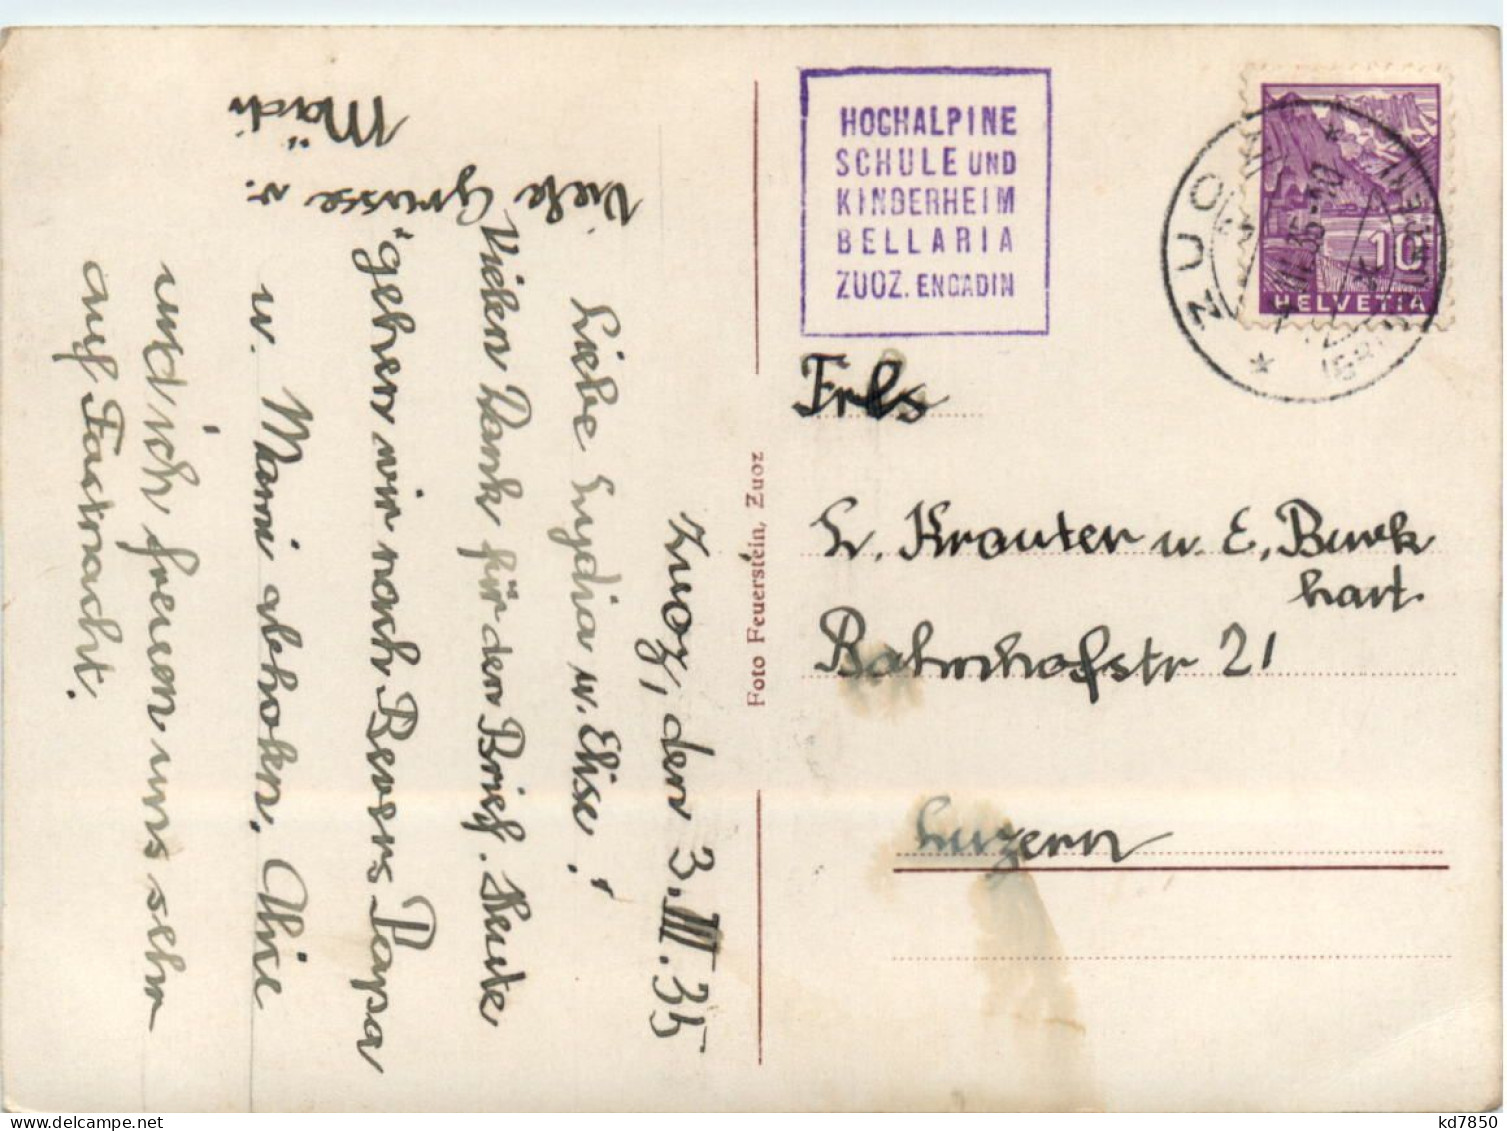 Zuoz, den 3. III. 35
Liebe Lydia u. Elise!
Vielen Dank für den Brief. Heute
gehen wir nach Bevers Papa
u. Mami abholen. Chrie
und ich freuen uns sehr
auf Fastnacht.
Viele Grüsse v.
Mädi
Foto Feuerstein, Zuoz
HOCHALPINE
SCHULE UND
KINDERHEIM
BELLARIA
ZUOZ. ENGADIN
ZUOZ
10
HELVETIA
Frls
L. Krauter u. E. Burk
hart.
Bahnhofstr 21
Luzern
kd7850